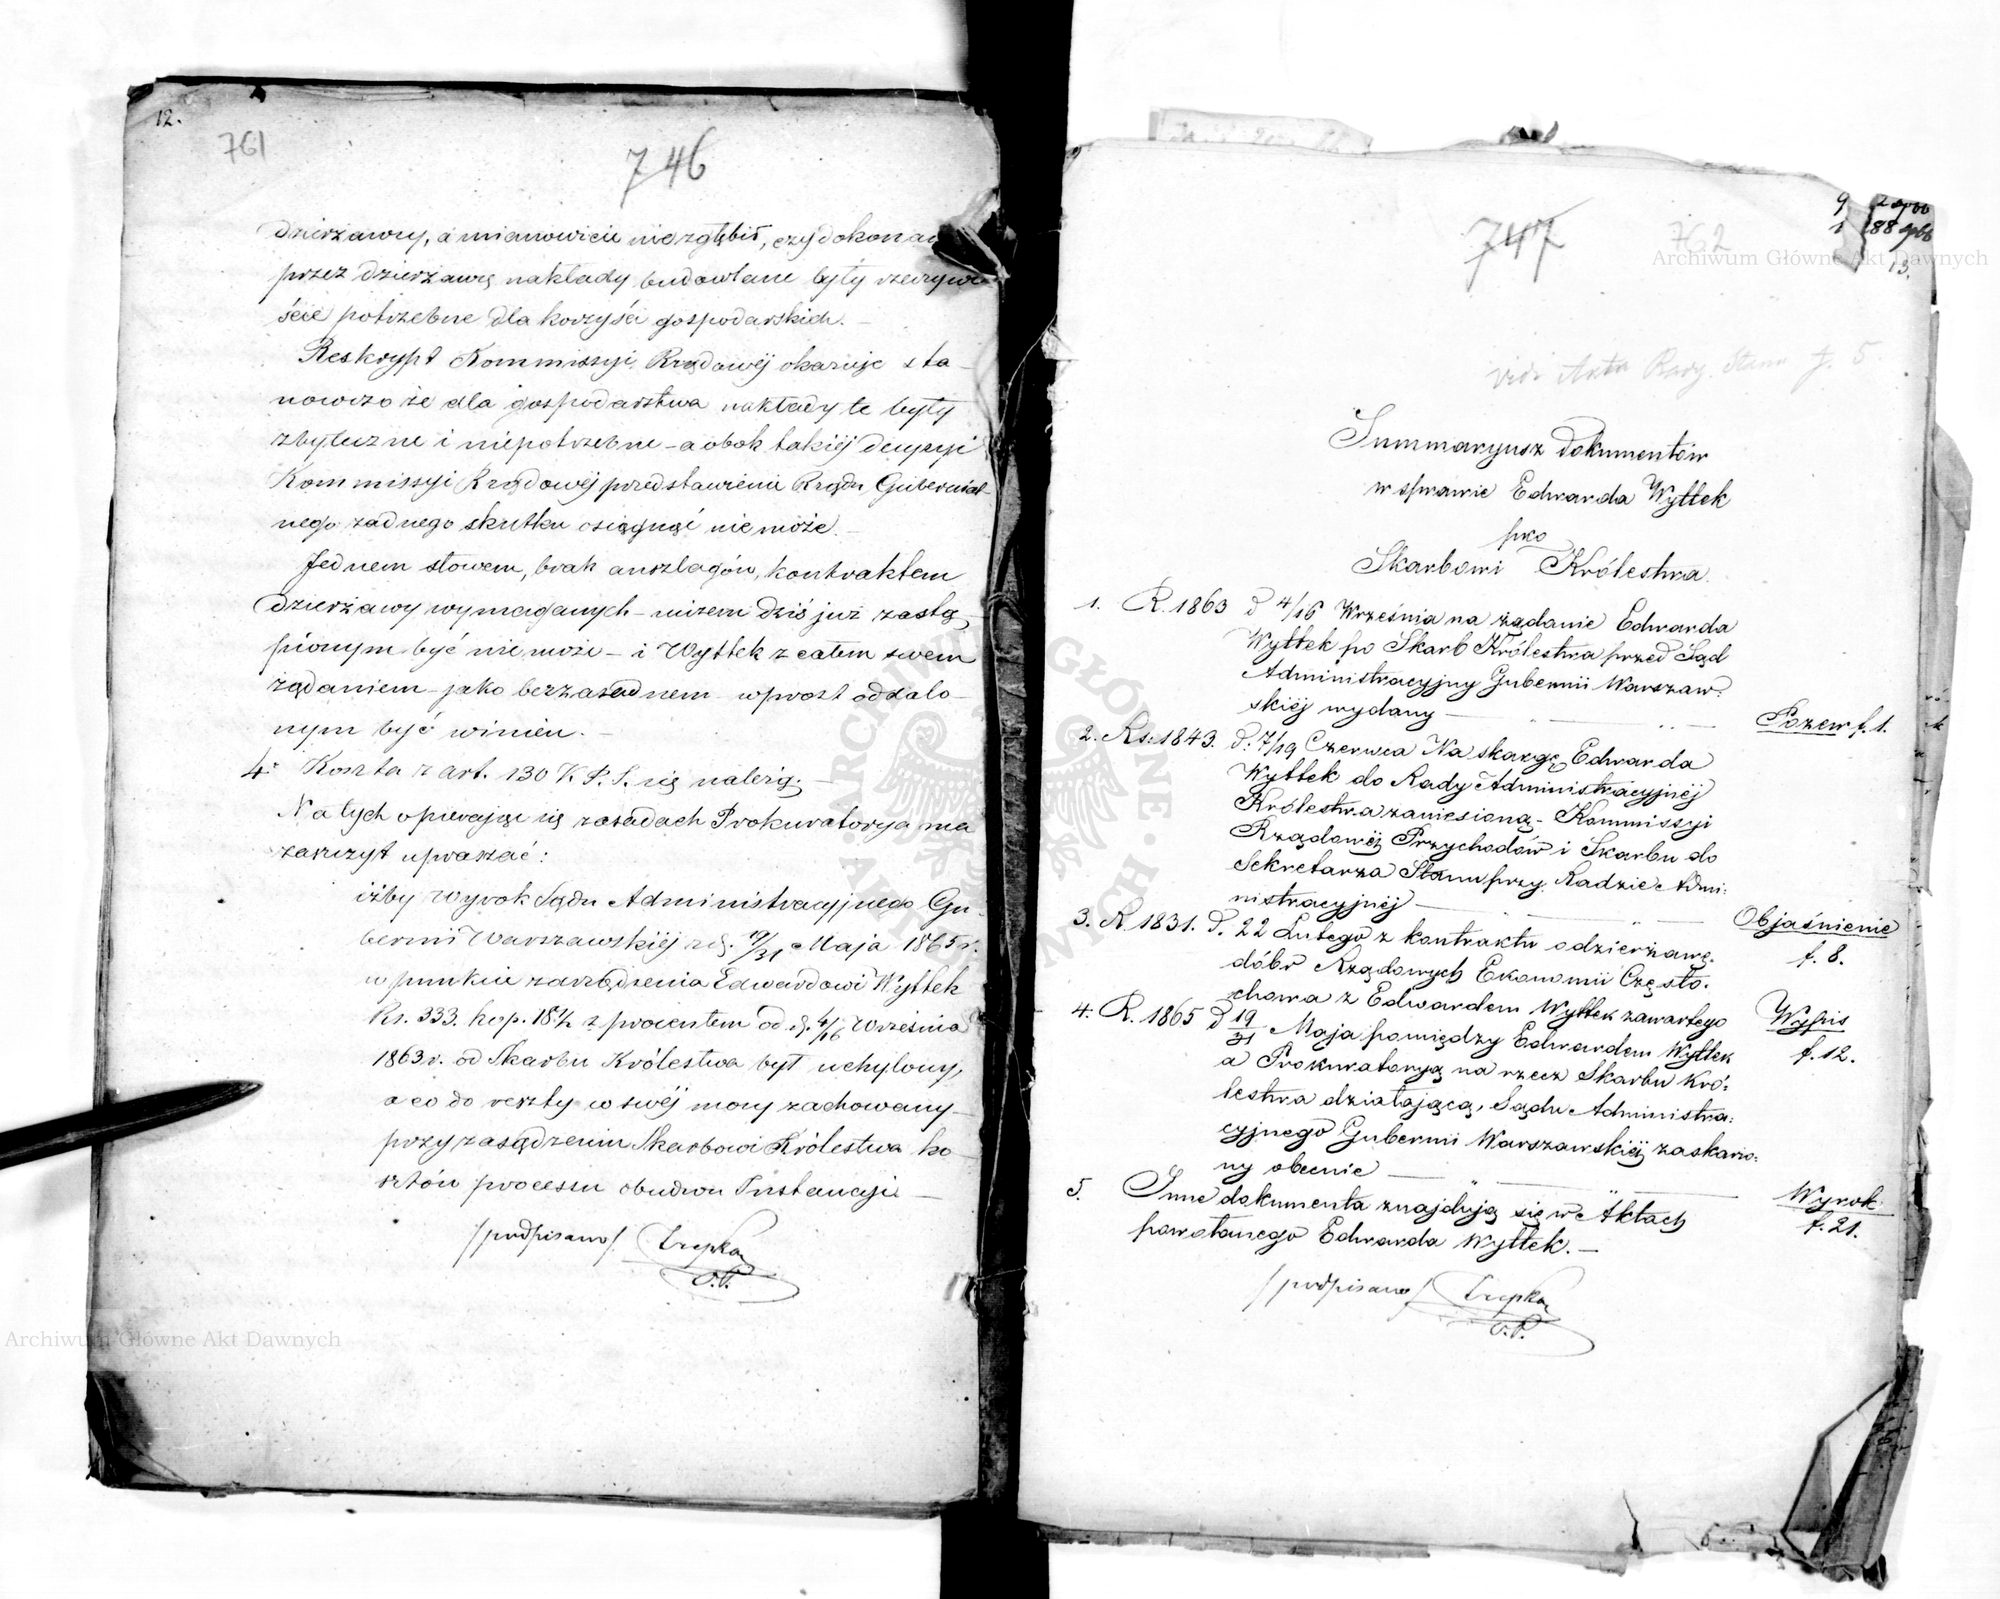 12.
761
746
dzierżawcy, a mianowicie nie zgłębił, czy dokonane
przez dzierżawcę nakłady budowlane były rzeczywi-
ście potrzebne dla korzyści gospodarskich. –
Reskrypt Kommissyi Rządowéj okazuje sta-
nowczo że dla gospodarstwa nakłady te były
zbyteczne i niepotrzebne – a obok takiéj decyzyi
Kommissyi Rządowéj przedstawienie Rządu Gubernial-
nego żadnego skutku osiągnąć nie może. –
Jednem słowem, brak anszlagów, kontraktem
dzierżawy wymaganych – niczem dziś już zastą-
pionym być nie może – i Wyttek z całem swem
żądaniem – jako bezzasadnem – wprost oddalo-
nym być winien. –
4º Koszta z art. 130 K. P. S. się należą. –
Na tych opierając się zasadach Prokuratorya ma
zaszczyt upraszać:
iżby Wyrok Sądu Administracyjnego Gu-
bernii Warszawskiéj z d. 19/31 Maja 1865 r.
w punkcie zasądzenia Edwardowi Wyttek
Rs. 333. kop. 18½ z procentem od d. 4/16 Września
1863 r. od Skarbu Królestwa był uchylony,
a co do reszty w swéj mocy zachowany –
przy zasądzeniu Skarbowi Królestwa ko-
sztów processu obudwu Instancyi –
/podpisano/ Trepka
O.P.
Archiwum Główne Akt Dawnych
747
762
Archiwum Główne Akt Dawnych
13.
vide Akta Rady Stanu f. 5
Summaryusz dokumentów
w sprawie Edwarda Wyttek
pko
Skarbowi Królestwa
1. R. 1863 d 4/16 Września na żądanie Edwarda
Wyttek po Skarb Królestwa przed Sąd
Administracyjny Gubernii Warszaw-
skiéj wydany – Pozew f. 1.
2. Rs: 1843. d: 7/19 Czerwca Na skargę Edwarda
Wyttek do Rady Administracyjnéj
Królestwa zaniesioną – Kommissyi
Rządowéj Przychodów i Skarbu do
Sekretarza Stanu przy Radzie Admi:
nistracyjnéj – Objaśnienie
f. 8.
3. R 1831. d. 22 Lutego z kontraktu o dzierżawę
dóbr Rządowych Ekonomii Często:
chowa z Edwardem Wyttek zawartego
Wypis
f. 12.
4. R. 1865 d 19/31 Maja pomiędzy Edwardem Wyttek
a Prokuratoryą na rzecz Skarbu Kró:
lestwa działającą, Sądu Administra:
cyjnego Gubernii Warszawskiéj zaskarżo:
ny obecnie – Wyrok
f. 21.
5. Inne dokumenta znajdują się w Aktach
powołanego Edwarda Wyttek. –
/podpisano/ Trepka
O.P.